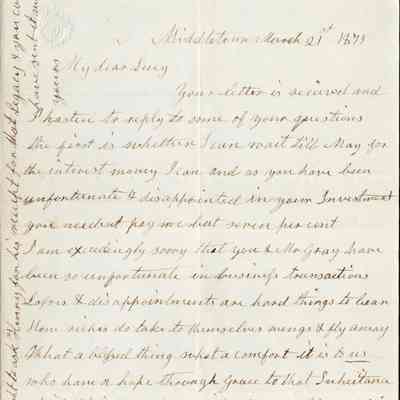 Middletown March 21st 1873
My dear Lucy
Your letter is recieved and
I hasten to reply to some of your questions
the first is whether I can wait till May for
the interest money I can and as you have been
unfortunate & disappointed in your Investment
you needent pay me but seven per cent
I am exceedingly sorry that you & Mr Gray have
been so unfortunate in business transactions
Losses & disappointments are hard things to bear
How riches do take to themselves wings & fly away
What a blessed thing what a comfort it is to us
who have a hope through Grace to that Inheritance
ask Henry for his receipt for that Legacy & you can
have sent it
yours